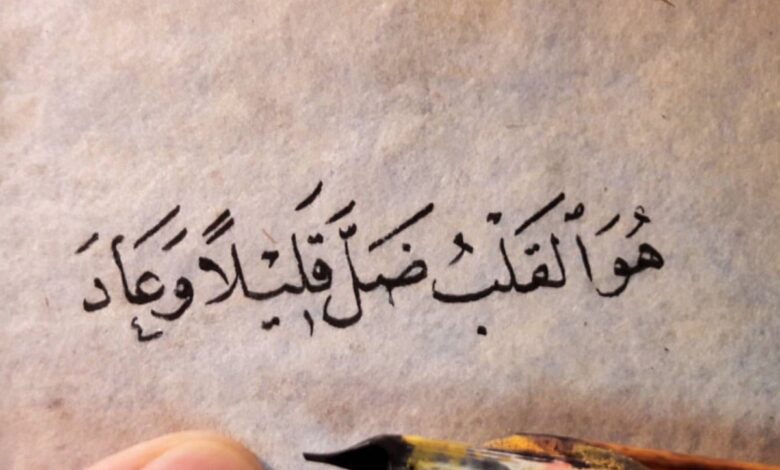 هُوَ ٱلقَلْبُ ضَلَّ قَلِيْلاً وَعَادَ